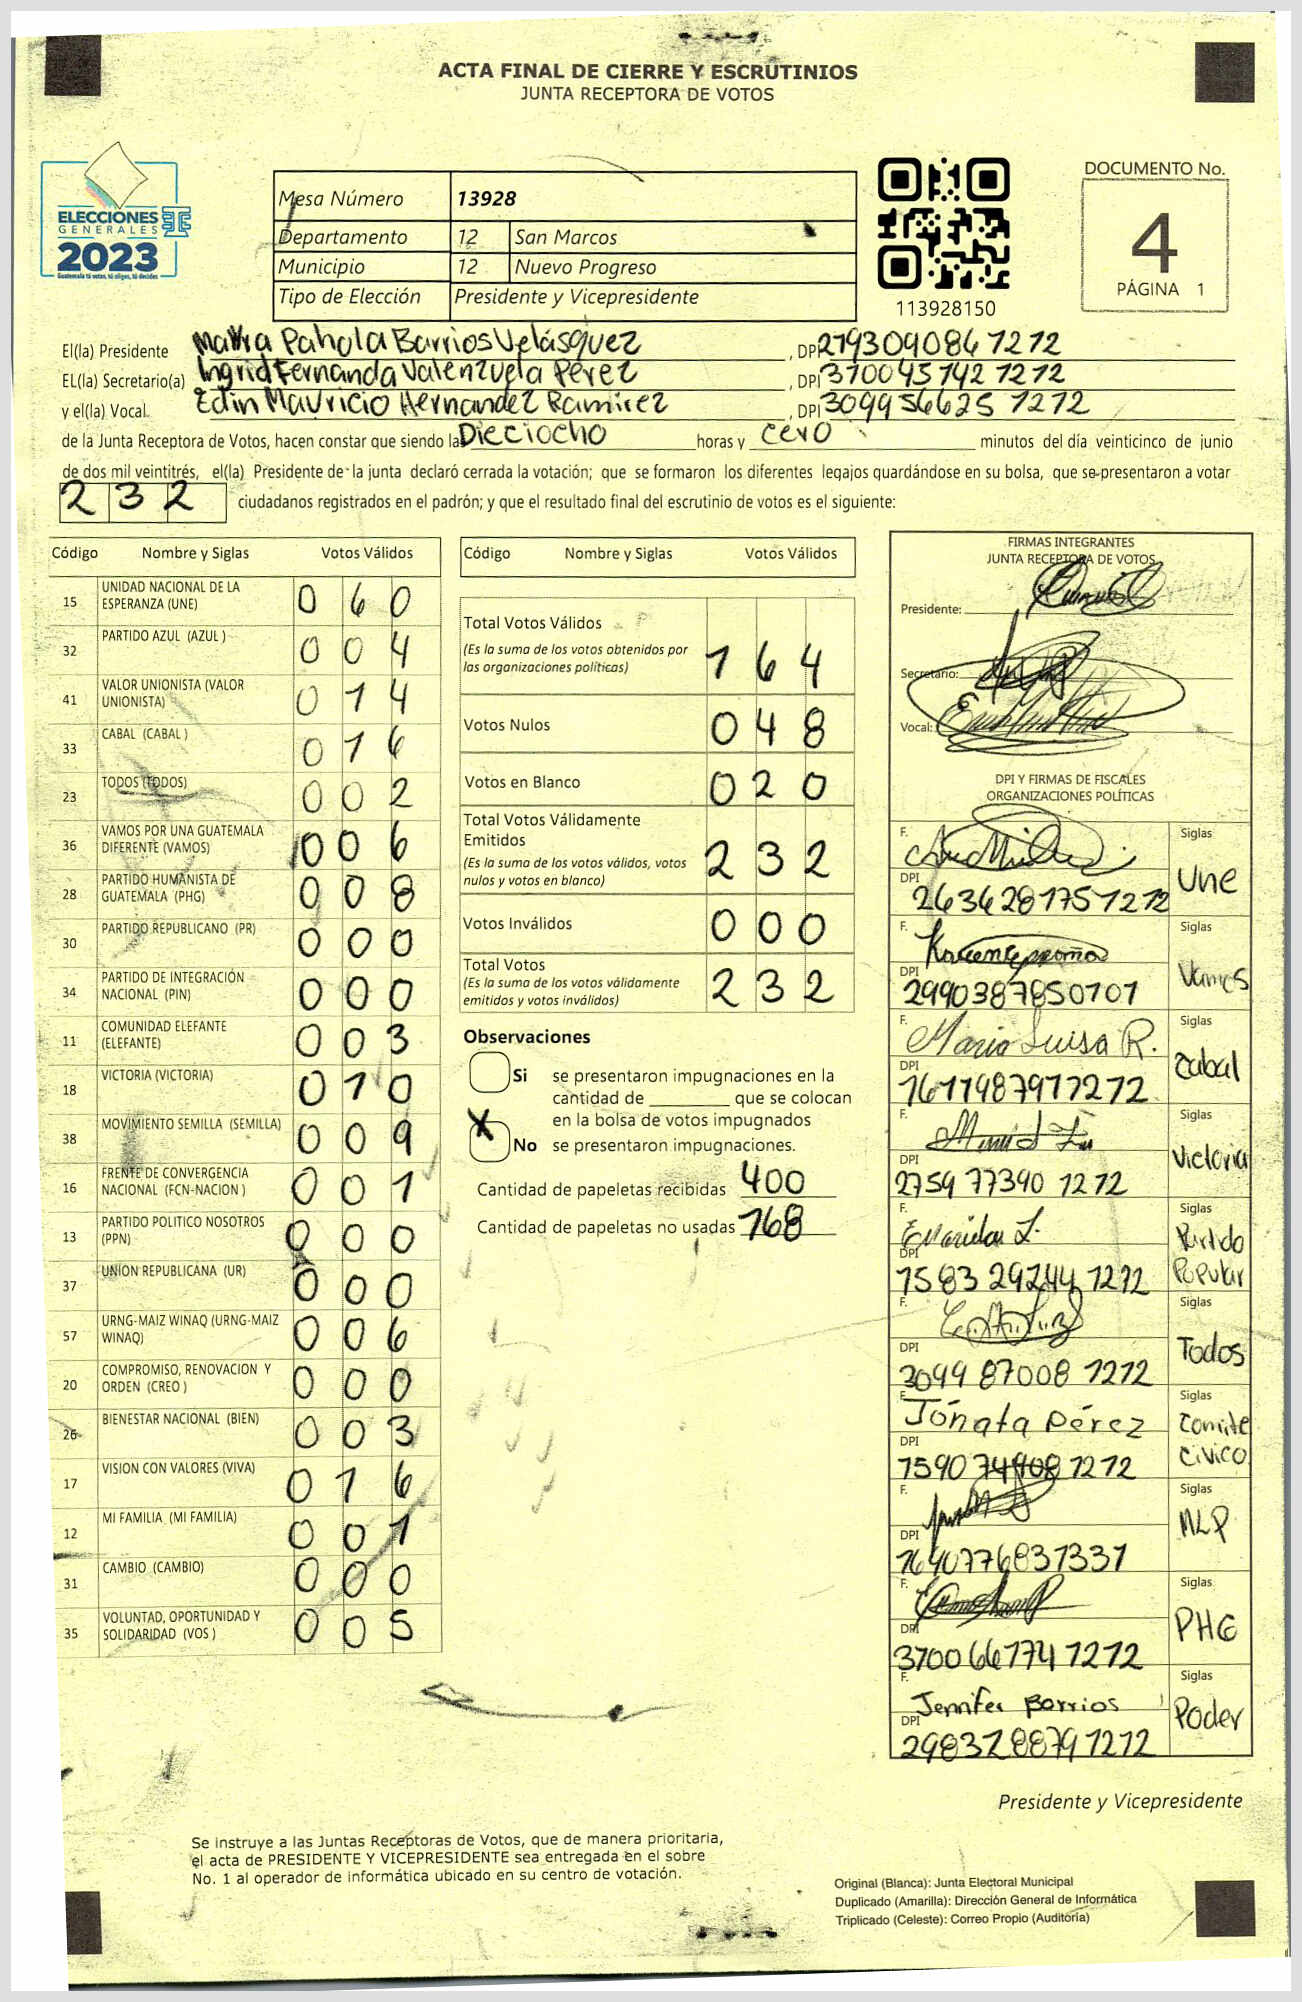 ACTA FINAL DE CIERRE Y ESCRUTINIOS
JUNTA RECEPTORA DE VOTOS
ELECCIONES
GENERALES
2023
Guatemala tú votas, tú eliges, tú decides
Mesa Número 13928
Departamento 12 San Marcos
Municipio 12 Nuevo Progreso
Tipo de Elección Presidente y Vicepresidente
113928150
DOCUMENTO No.
4
PÁGINA 1
El(la) Presidente Pahola Barrios Velásquez, DPI 279309086 1212
EL(la) Secretario(a) Ingrid Fernanda Valenzuela Pérez, DPI 370045742 1212
y el(la) Vocal. Edin Mauricio Hernandez Ramirez, DPI 309956625 1212
de la Junta Receptora de Votos, hacen constar que siendo las Dieciocho horas y cero minutos del día veinticinco de junio
de dos mil veintitrés, el(la) Presidente de la junta declaró cerrada la votación; que se formaron los diferentes legajos guardándose en su bolsa, que se presentaron a votar
232 ciudadanos registrados en el padrón; y que el resultado final del escrutinio de votos es el siguiente:
Código Nombre y Siglas Votos Válidos
15 UNIDAD NACIONAL DE LA ESPERANZA (UNE) 060
32 PARTIDO AZUL (AZUL ) 004
41 VALOR UNIONISTA (VALOR UNIONISTA) 014
33 CABAL (CABAL ) 016
23 TODOS (TODOS) 002
36 VAMOS POR UNA GUATEMALA DIFERENTE (VAMOS) 006
28 PARTIDO HUMANISTA DE GUATEMALA (PHG) 008
30 PARTIDO REPUBLICANO (PR) 000
34 PARTIDO DE INTEGRACIÓN NACIONAL (PIN) 000
11 COMUNIDAD ELEFANTE (ELEFANTE) 003
18 VICTORIA (VICTORIA) 010
38 MOVIMIENTO SEMILLA (SEMILLA) 009
16 FRENTE DE CONVERGENCIA NACIONAL (FCN-NACION ) 001
13 PARTIDO POLITICO NOSOTROS (PPN) 000
37 UNION REPUBLICANA (UR) 000
57 URNG-MAIZ WINAQ (URNG-MAIZ WINAQ) 006
20 COMPROMISO, RENOVACION Y ORDEN (CREO ) 000
26 BIENESTAR NACIONAL (BIEN) 003
17 VISION CON VALORES (VIVA) 016
12 MI FAMILIA (MI FAMILIA) 001
31 CAMBIO (CAMBIO) 000
35 VOLUNTAD, OPORTUNIDAD Y SOLIDARIDAD (VOS ) 005
Código Nombre y Siglas Votos Válidos
Total Votos Válidos
(Es la suma de los votos obtenidos por
las organizaciones políticas) 164
Votos Nulos 048
Votos en Blanco 020
Total Votos Válidamente
Emitidos
(Es la suma de los votos válidos, votos
nulos y votos en blanco) 232
Votos Inválidos 000
Total Votos
(Es la suma de los votos válidamente
emitidos y votos inválidos) 232
Observaciones
Si se presentaron impugnaciones en la
cantidad de ________ que se colocan
en la bolsa de votos impugnados
X No se presentaron impugnaciones.
Cantidad de papeletas recibidas 400
Cantidad de papeletas no usadas 168
FIRMAS INTEGRANTES
JUNTA RECEPTORA DE VOTOS
Presidente:
Secretario:
Vocal:
DPI Y FIRMAS DE FISCALES
ORGANIZACIONES POLÍTICAS
F. Siglas
DPI 2636281751212 Une
F. Siglas
DPI 2990387850101 Vamos
F. Maria Luisa R. Siglas
DPI 1611987971212 Cabal
F. Siglas
DPI 2759 77390 1212 Victoria
F. Siglas
DPI 1583 29244 1212 Partido Popular
F. Siglas
DPI 3099 87008 1212 Todos
F. Jónata Pérez Siglas
DPI 1590 74908 1212 Comite Civico
F. Siglas
DPI 1640776831331 MLP
F. Siglas
DPI 3700661741212 PHG
F. Jennifer Barrios Siglas
DPI 2983288791212 Poder
Presidente y Vicepresidente
Se instruye a las Juntas Receptoras de Votos, que de manera prioritaria,
el acta de PRESIDENTE Y VICEPRESIDENTE sea entregada en el sobre
No. 1 al operador de informática ubicado en su centro de votación.
Original (Blanca): Junta Electoral Municipal
Duplicado (Amarilla): Dirección General de Informática
Triplicado (Celeste): Correo Propio (Auditoría)